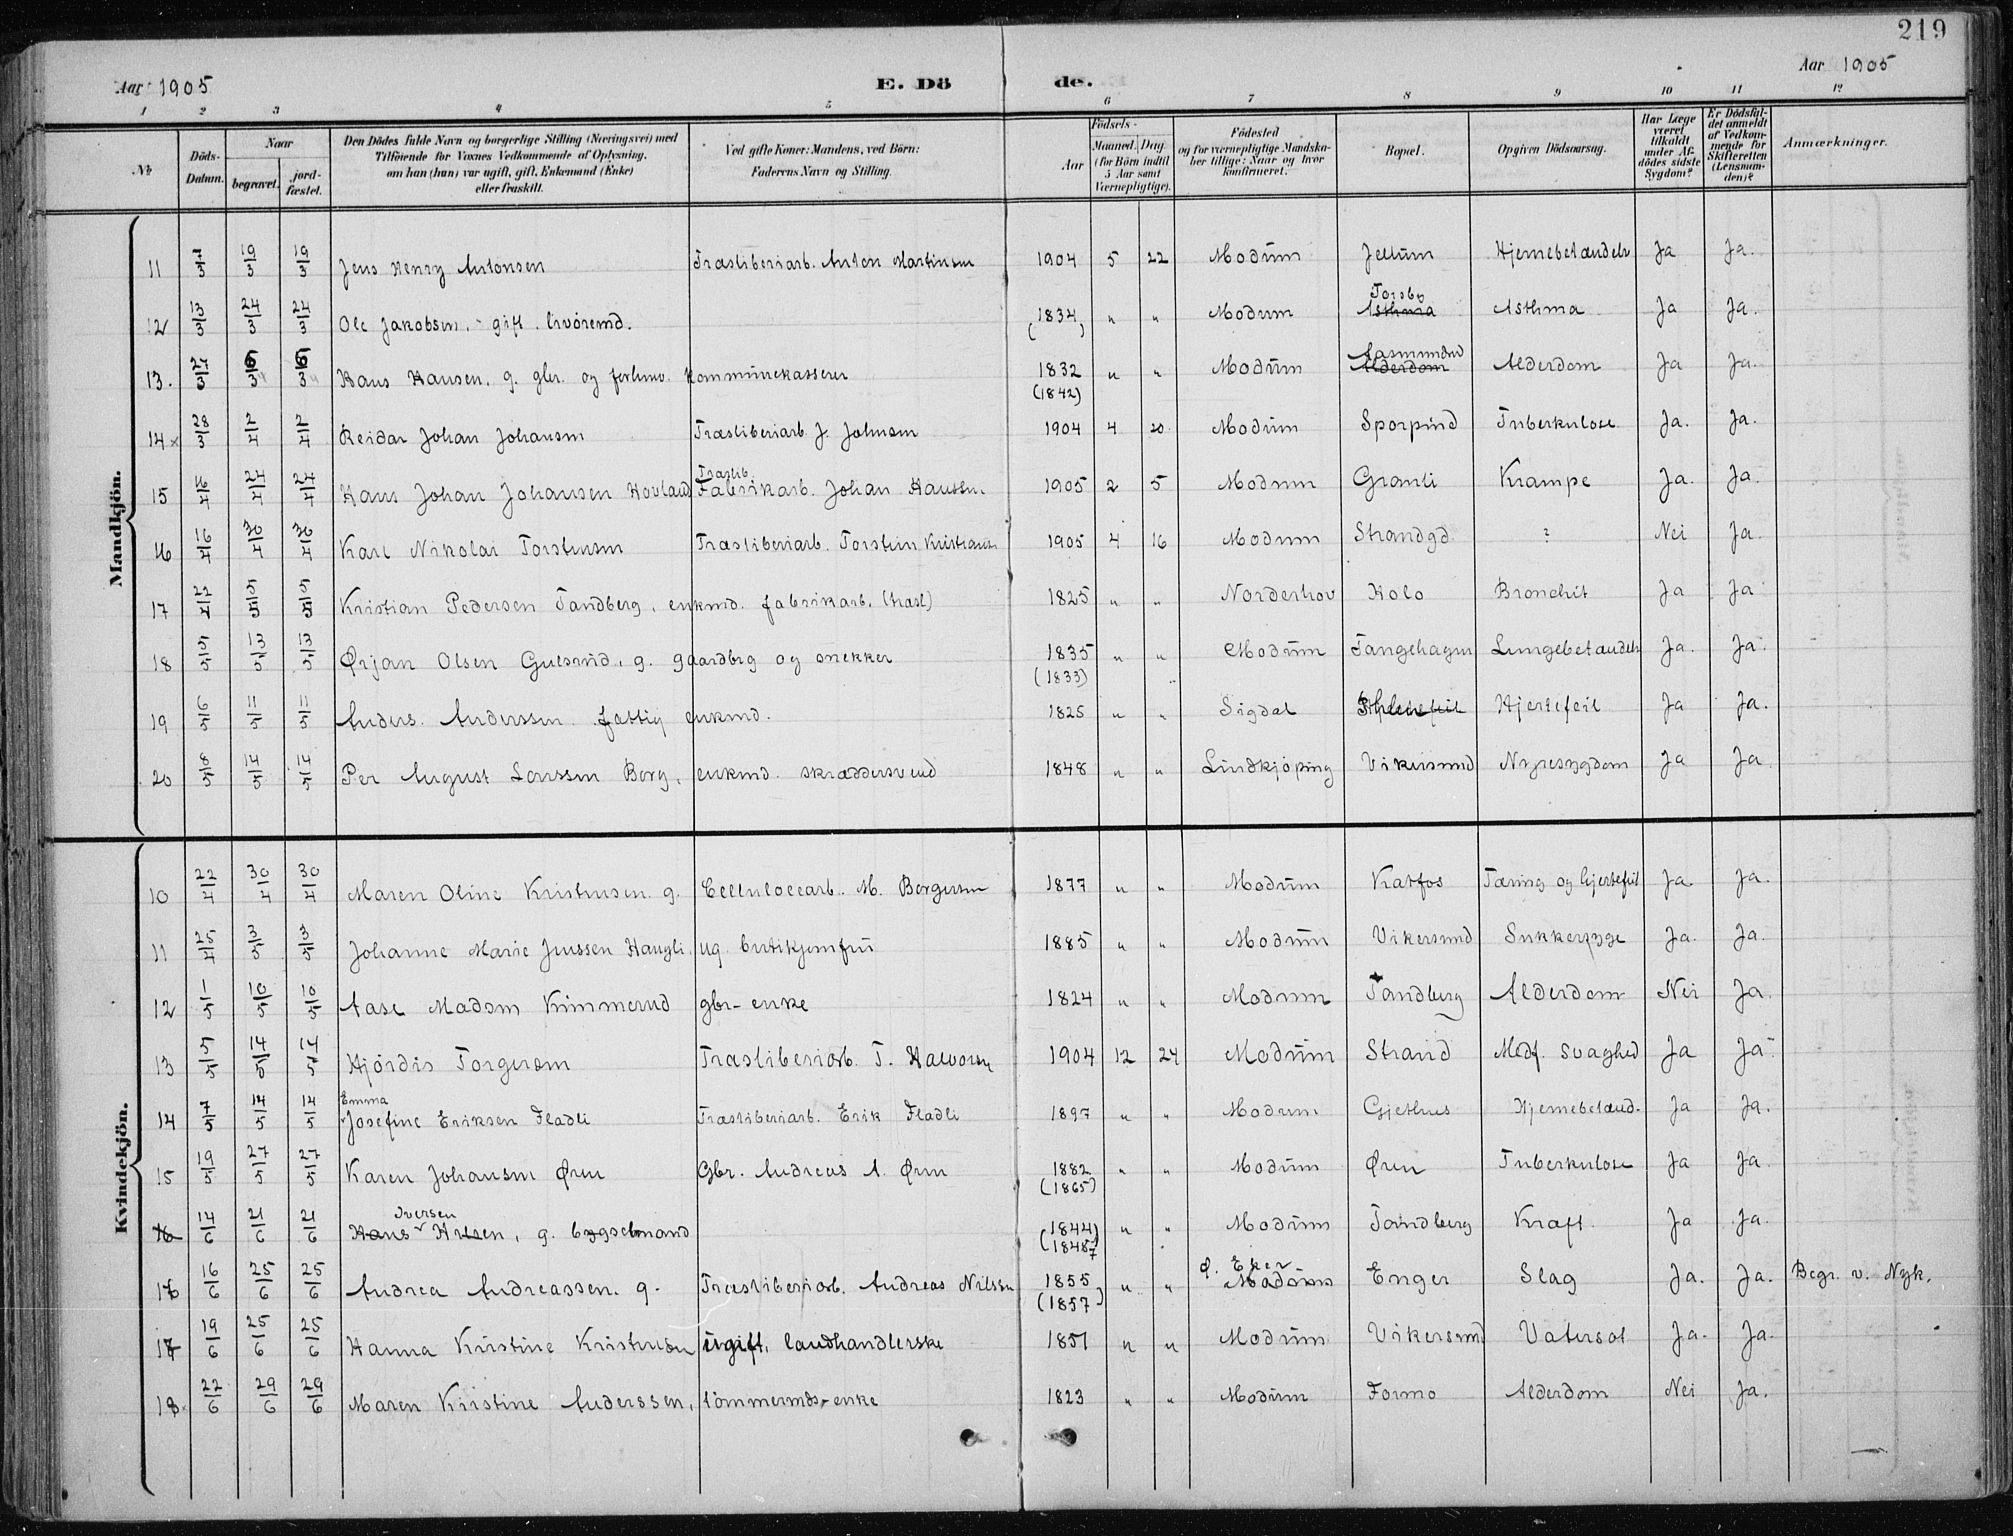 219
Aar 1905 E. Dö de. Aar 1905
1 2 3 4 5 6 7 8 9 10 11 12
№ Döds-Datum. Naar begravet. jord-fæstet. Den Dödes fulde Navn og borgerlige Stilling (Næringsvei) med Tilföiende for Voxnes Vedkommende af Oplysning, om han (hun) var ugift, gift, Enkemand (Enke) eller fraskilt. Ved gifte Koner: Mandens, ved Börn: Faderens Navn og Stilling. Födsels- Aar Maaned. Dag. (for Börn indtil 5 Aar samt Værnepligtige). Födested og for værnepligtige Mandskaber tillige: Naar og hvor konfirmeret. Bopæl. Opgiven Dödsaarsag. Har Læge været tilkaldt under Afdödes sidste Sygdom? Er Dödsfaldet anmeldt af Vedkommende for Skifteretten (Lensmanden)? Anmærkninger.
Mandkjön.
11 7/3 19/3 19/3 Jens Henry Antonsen Træsliberiarb. Anton Martinsen 1904 5 22 Modum Jellum Hjernebetændelse Ja Ja.
12 13/3 24/3 24/3 Ole Jakobsen, gift. livöremd. (1834) " " Modum Torsby Asthma Asthma Ja Ja.
13. 27/3 6/3 6/3 Hans Hansen, g. gbr. og forhenv. kommunekasserer 1832 (1842) " " Modum Aasmundrud Alderdom Alderdom Ja Ja.
14 x 28/3 2/4 2/4 Reidar Johan Johansen Træsliberiarb. J. Johnsen 1904 4 20 Modum Sporpind Tuberkulose Ja. Ja.
15 16/4 24/4 24/4 Hans Johan Johansen Hovland Træslib. Fabrikarb. Johan Hansen. 1905 2 5 Modum Granli Krampe Ja. Ja.
16 16/4 30/4 30/4 Karl Nikolai Torstensen Træsliberiarb. Torstein Kristiansen 1905 4 16 Modum Strandgd. ? Nei Ja.
17 22/4 5/5 5/5 Kristian Pedersen Tandberg, enkmd. fabrikarb. (træsl) 1825 " " Norderhov Kolo Bronchit Ja Ja
18 5/5 13/5 13/5 Ørjan Olsen Gulsrud, g. gaardbrg og snekker 1835 (1833) " " Modum Tangehagen Lungebetændelse Ja. Ja.
19 6/5 11/5 11/5 Anders Anderssen fattig enkmd. 1825 " " Sigdal Hjertefeil Ja Ja.
20 8/5 14/5 14/5 Per August Larssen Borg, enkmd. skræddersvend 1848 " " Lindkjöping Vikersund Nyresygdom Ja Ja
Kvindekjön.
10 22/4 30/4 30/4 Maren Oline Kristensen g. Cellulocearb. M. Borgersen 1877 " " Modum Katfos Tæring og hjertefeil Ja. Ja.
11 25/4 3/5 3/5 Johanne Marie Jenssen Haugli, ug. butikjomfru 1885 " " Modum Vikersund Sukkersyge Ja. Ja.
12 1/5 10/5 10/5 Aase Madsen Kimmerud gbr-enke 1824 " " Modum Tandberg Alderdom Nei Ja.
13 5/5 14/5 14/5 Hjördis Torgersen Træsliberiarb. T. Halvorsen 1904 12 24 Modum Strand Medf. svaghed Ja Ja.
14 7/5 14/5 14/5 Emma Josefine Eriksen Fladli Træsliberiarb. Erik Fladli 1897 " " Modum Gjethus Hjernebetænd. Ja Ja.
15 19/5 27/5 27/5 Karen Johansen Øren Gbr. Andreas A. Øren 1882 (1865) " " Modum Øren Tuberkulose Ja Ja.
16 14/6 21/6 21/6 Hans Iversen, g. bygselmand (1844) (1847) " " Modum Tandberg Kræft. Ja Ja.
16 16/6 25/6 25/6 Andrea Andreassen. g. Træsliberiarb. Andreas Nilssen 1855 (1857) " " Ø. Eker Modum Enger Slag Ja. Ja. Begr. v. Nyk.
17 19/6 25/6 25/6 Hanna Kristine Kristensen ugift, landhandlerske 1851 " " Modum Vikersund Vatersot Ja. Ja.
18 22/6 29/6 29/6 Maren Kirstine Anderssen, tömmermds-enke 1823 " " Modum Formo Alderdom Nei Ja.